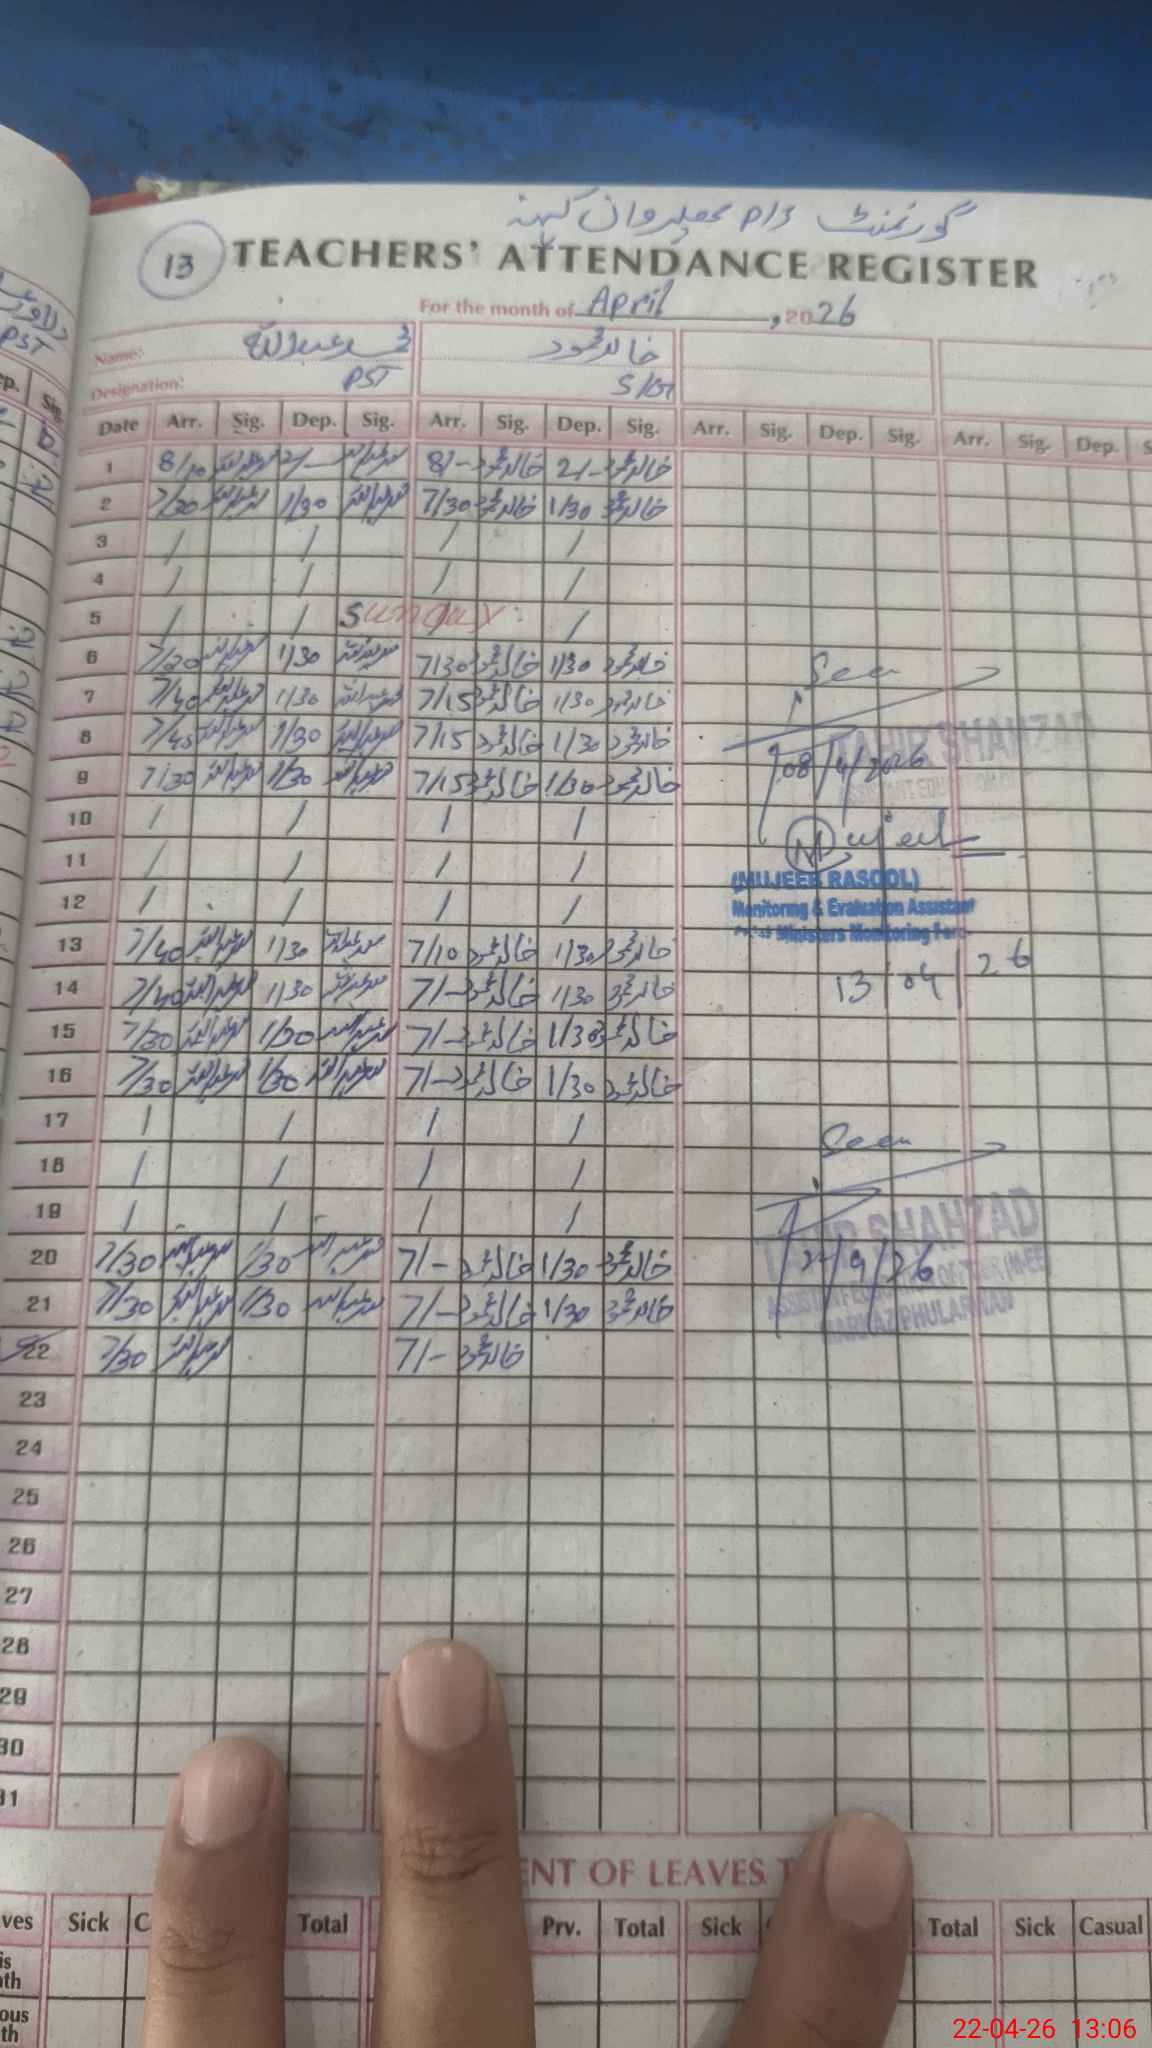 گورنمنٹ P/S پھلروان کہنہ
13 TEACHERS' ATTENDANCE REGISTER
For the month of April, 2026
Name: محمد عبداللہ خالد محمود
Designation: PST S/G
Date Arr. Sig. Dep. Sig. Arr. Sig. Dep. Sig. Arr. Sig. Dep. Sig. Arr. Sig. Dep.
1 2/- 8/- خالد محمود 2/- خالد محمود
2 7/30 1/30 7/30 خالد محمود 1/30 خالد محمود
3 / / / /
4 / / / /
5 / / Sunday /
6 7/20 1/30 7/30 خالد محمود 1/30 خالد محمود Seen
7 7/40 1/30 7/15 خالد محمود 1/30 خالد محمود
8 7/45 1/30 7/15 خالد محمود 1/30 خالد محمود TAHIR SHAHZAD
08/4/2026
9 7/30 1/30 7/15 خالد محمود 1/30 خالد محمود
10 / / / / Mujeeb
11 / / / /
(MUJEEB RASOOL)
12 / / / /
Monitoring & Evaluation Assistant
Ministers Monitoring Force
13 7/40 1/30 7/10 خالد محمود 1/30 خالد محمود
13/04/26
14 7/40 1/30 7/- خالد محمود 1/30 خالد محمود
15 7/30 1/30 7/- خالد محمود 1/30 خالد محمود
16 7/30 1/30 7/- خالد محمود 1/30 خالد محمود
17 / / / / Seen
18 / / / /
19 / / / /
TAHIR SHAHZAD
20 7/30 1/30 7/- خالد محمود 1/30 خالد محمود
21 7/30 1/30 7/- خالد محمود 1/30 خالد محمود
MARKAZ PHULARWAN
22 7/30 7/- خالد محمود
23
24
25
26
27
28
29
30
31
ENT OF LEAVES T
Sick Total Prv. Total Sick Total Sick Casual
22-04-26 13:06